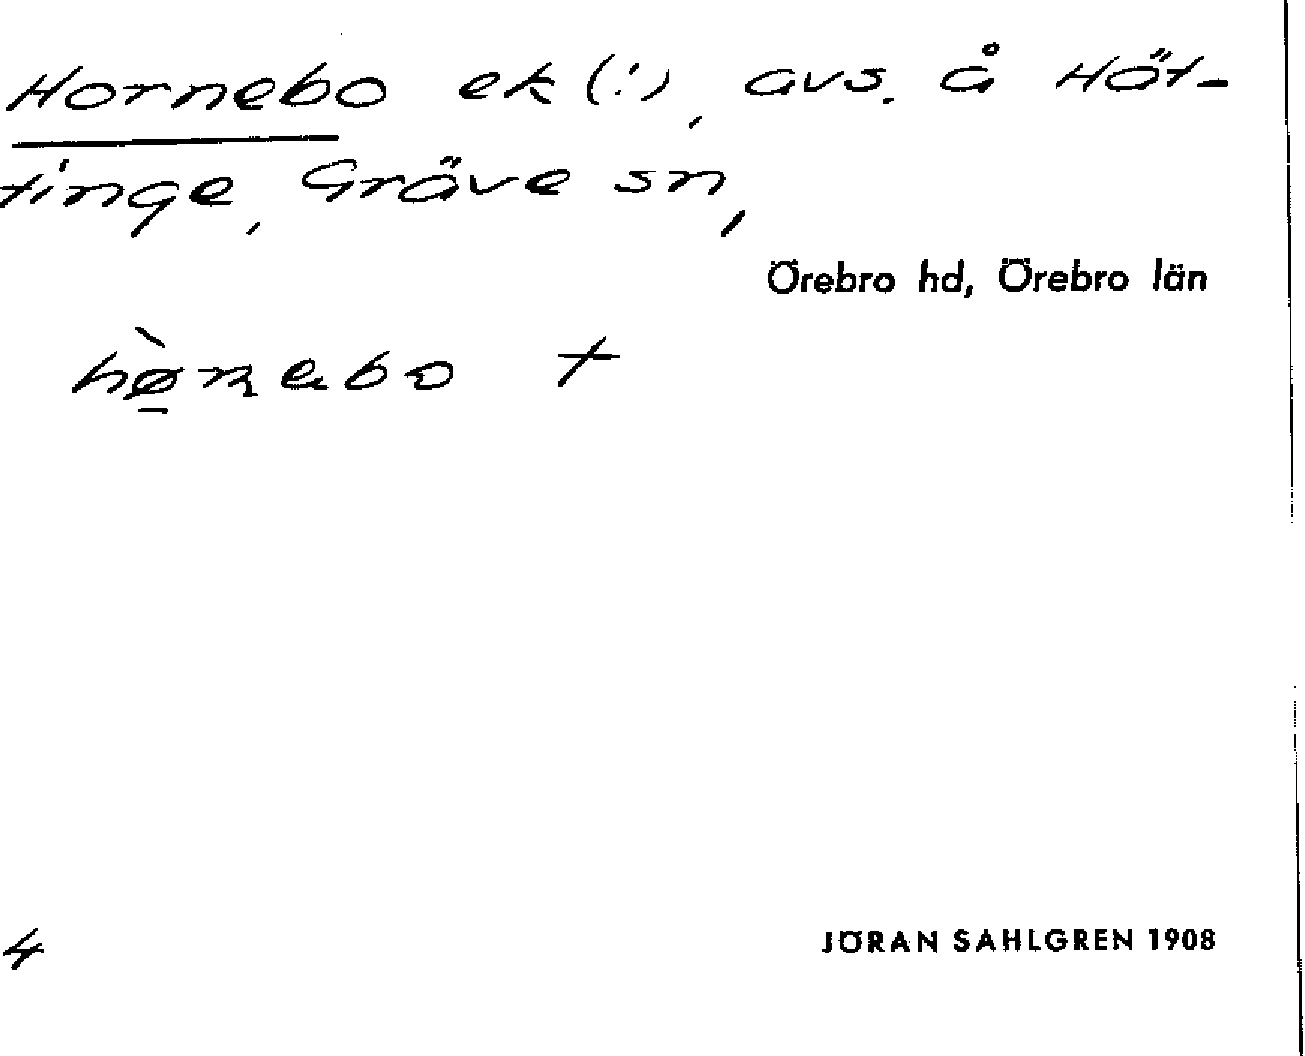 Hornebo ek (!), avs. å Hät-
tinge, Gräve sn,
Örebro hd, Örebro län
+
4
JÖRAN SAHLGREN 1908